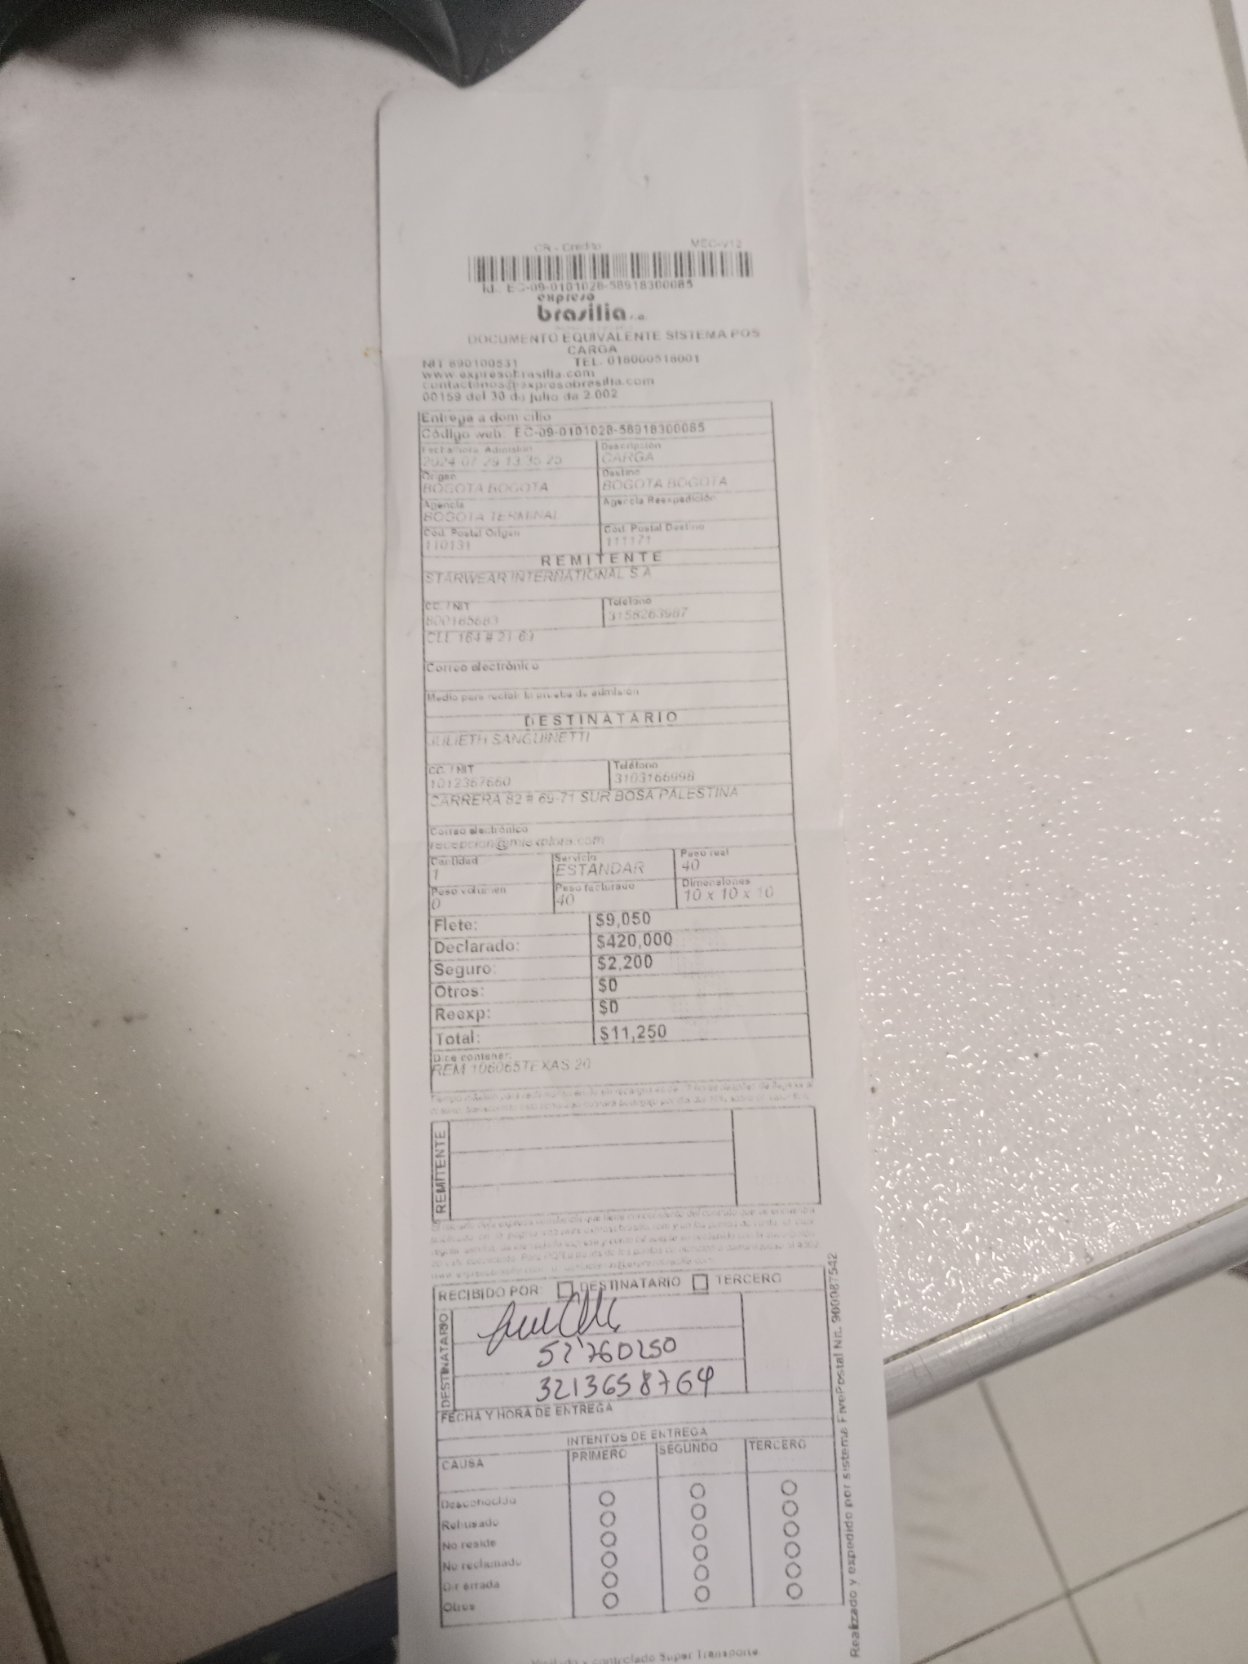 CR - Credito
Id.: EC-09-0101028-58918300085
expreso
brasilia s.a.
DOCUMENTO EQUIVALENTE SISTEMA POS
CARGA
NIT 890100531 TEL. 018000518001
www.expresobrasilia.com
contactenos@expresobrasilia.com
00159 del 30 de julio de 2.002
Entrega a domicilio
Código web: EC-09-0101028-58918300085
Fecha/hora Admisión Descripción
2024-07-29 13:35:25 CARGA
Origen Destino
BOGOTA BOGOTA BOGOTA BOGOTA
Agencia Agencia Reexpedición
BOGOTA TERMINAL
Cód. Postal Origen Cód. Postal Destino
110131 111171
REMITENTE
STARWEAR INTERNATIONAL S A
CC. / NIT Teléfono
800165683 3158263987
CLL 164 # 21 63
Correo electrónico
Medio para recibir la prueba de admisión
DESTINATARIO
JULIETH SANGUINETTI
CC. / NIT Teléfono
1012367660 3103166998
CARRERA 82 # 69-71 SUR BOSA PALESTINA
Correo electrónico
Cantidad Servicio Peso real
1 ESTANDAR 40
Peso volumen Peso facturado Dimensiones
0 40 10 x 10 x 10
Flete: $9,050
Declarado: $420,000
Seguro: $2,200
Otros: $0
Reexp: $0
Total: $11,250
Dice contener:
REM 106065TEXAS 20
REMITENTE
RECIBIDO POR DESTINATARIO TERCERO
DESTINATARIO
52'760250
3213658764
FECHA Y HORA DE ENTREGA
INTENTOS DE ENTREGA
CAUSA PRIMERO SEGUNDO TERCERO
Desconocido
Rehusado
No reside
No reclamado
Dir errada
Otros
Realizado y expedido por sistema FivePostal Nit. 900087542
Vigilado y controlado Super Transporte